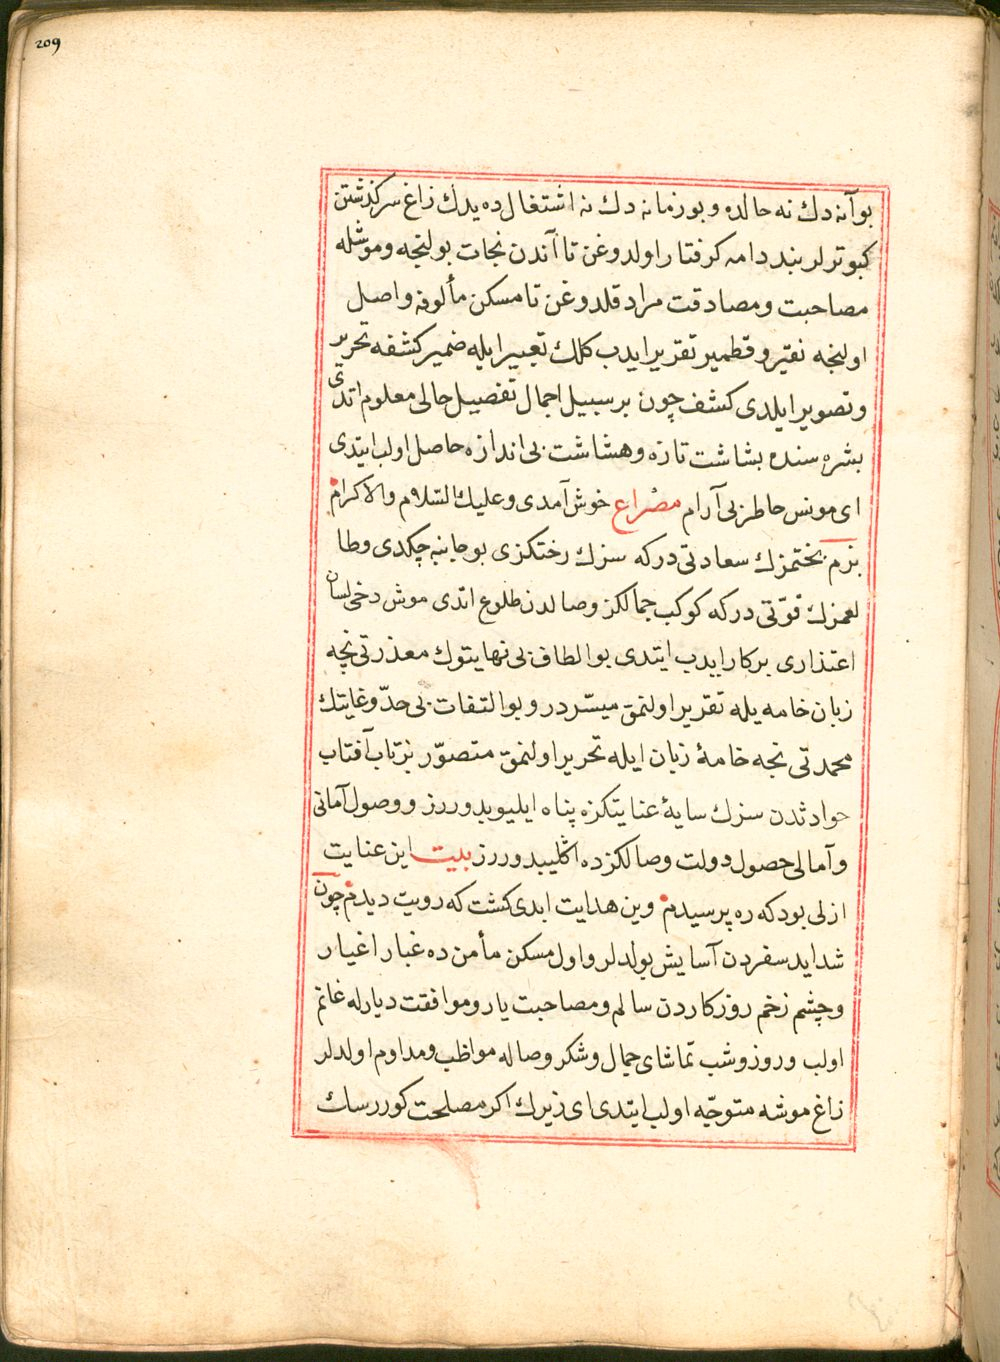 209
بو آنه دك نه حالده و بو زمانه دك نه اشتغال ده يدك زاغ سركذشتن
كبوترلر بند دامه كرفتار اولدوغن تا آندن نجات بولنجه و موشله
مصاحبت و مصادقت مراد قلدوغن تا مسكن مألوفه واصل
اولنجه نقير و قطمير تقرير ايدب كلك تعبير ايله ضمير كشفه تحرير
و تصوير ايلدى كشف چون بر سبيل اجمال تفصيل حالى معلوم اتدى
بشره سنده بشاشت تازه و هشاشت بى اندازه حاصل اولب ايتدى
اى مونس خاطر بى آرام مصراع خوش آمدى و عليك السّلام والاكرام
بزم بختمزك سعادتى دركه سزك رختكزى بو جانبه چكدى و طا
لعمزك قوّتى دركه كوكب جمالكز وصالدن طلوع اتدى موش دخى لسان
اعتذارى بركار ايدب ايتدى بو الطاف بى نهايتوك معذرتى نجه
زبان خامه يله تقرير اولنمق ميسّردر و بو التفات بى حدّ و غايتك
محمدتى نجه خامهٔ زبان ايله تحرير اولنمق متصوّر بز تاب آفتاب
حوادثدن سزك سايهٔ عنايتكزه پناه ايليويدوررز و وصول آمانى
و آمالى حصول دولت وصالكزده اكليبدوررز بيت اين عنايت
ازلى بود كه ره پرسيدم وين هدايت ابدى كشت كه رويت ديدم چون
شدايد سفردن آسايش بولدلر و اول مسكن مأمن ده غبار اغيار
و چشم زخم روزكاردن سالم و مصاحبت يار و موافقت ديارله غانم
اولب و روز و شب تماشاى جمال و شكر وصاله مواظب و مداوم اولدلر
زاغ موشه متوجّه اولب ايتدى اى زيرك اكر مصلحت كوررسك